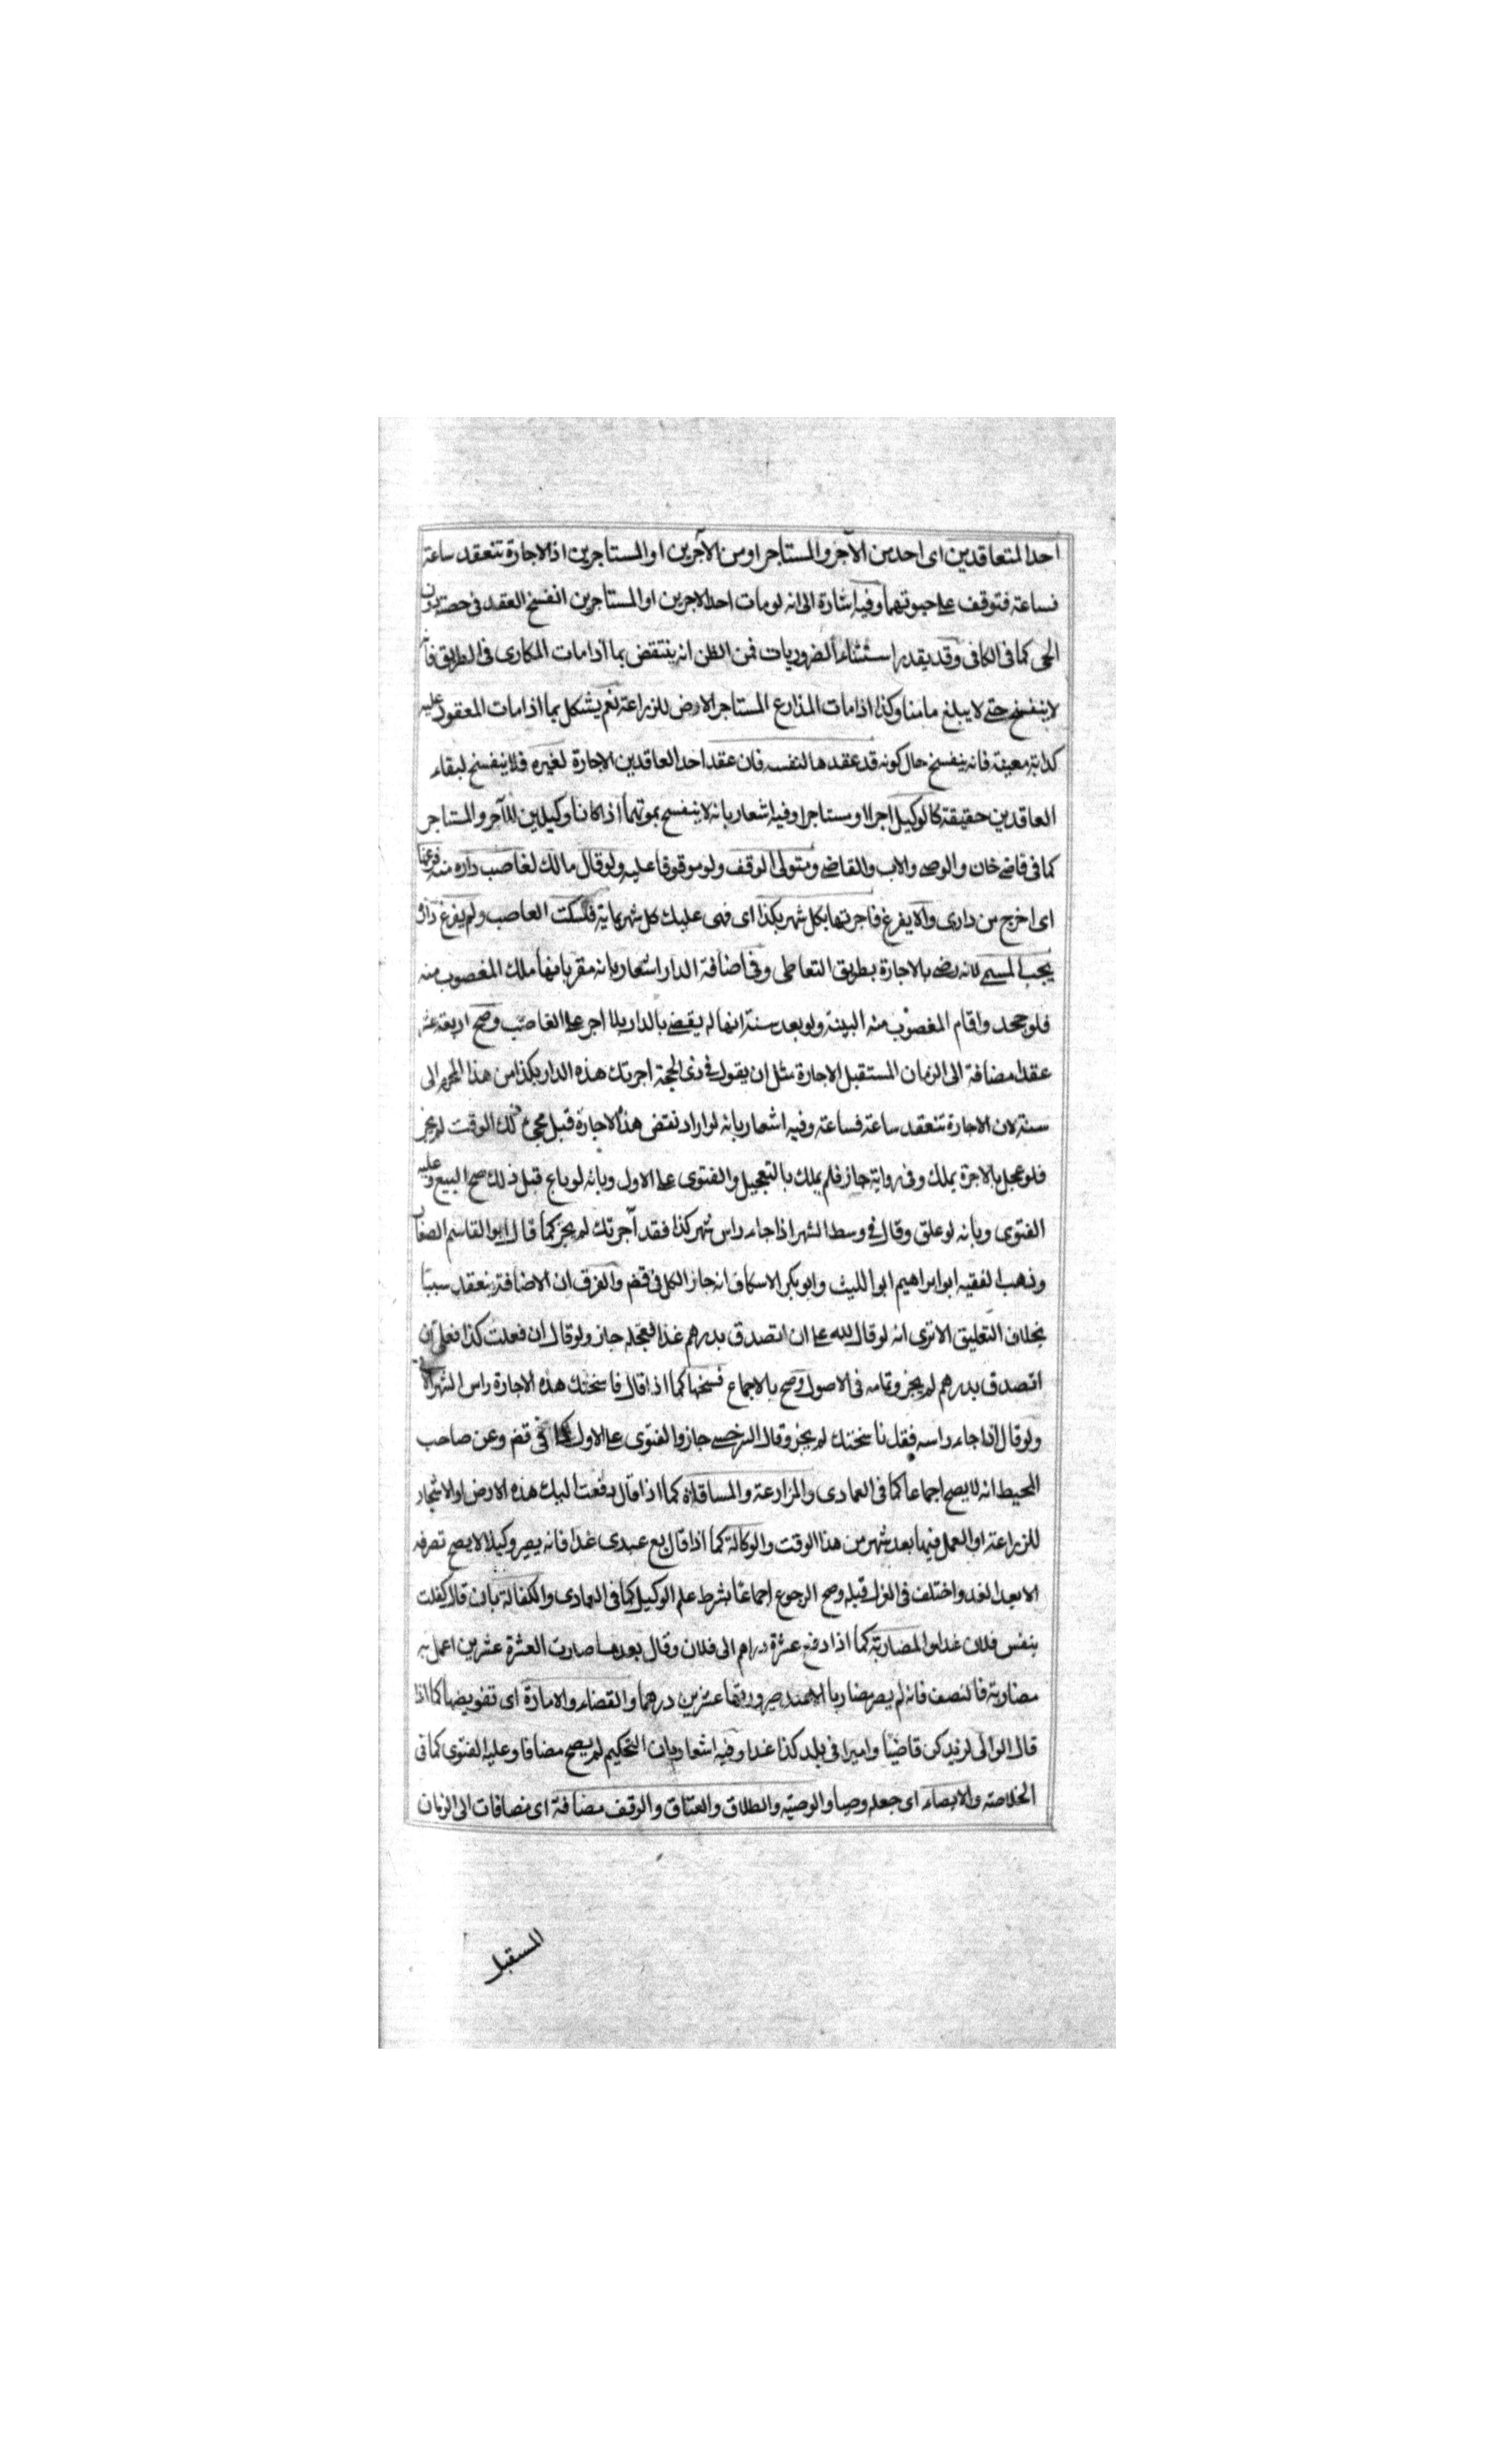 احد المتعاقدين اى احد من الآجر والمستاجر او من الآجرين او المستاجرين اذ الاجارة تنعقد ساعة
فساعة فتوقف على حيوتهما وفيه اشارة الى انه لو مات احد الاجرين او المستاجرين انفسخ العقد فى حصته دون
الحى كما فى الكافى وقد يقدر استثناء الضروريات فمن الظن انه ينتقض بما اذا مات المكارى فى الطريق فانه
لا ينفسخ حتى لا يبلغ مامنا وكذا اذا مات المذارع المستاجر الارض للزراعة نعم يشكل بما اذا مات المعقود عليه
كدابة معينة فانه ينفسخ حال كونه قد عقدها لنفسه فان عقد احد العاقدين الاجارة لغيره فلا ينفسخ لبقاء
العاقدين حقيقة كالوكيل اجرا او مستاجرا وفيه اشعار بانه لا ينفسخ بموتهما اذا كانا وكيلين للآجر والمستاجر
كما فى قاضى خان والوصى والاب والقاضى ومتولى الوقف ولو موقوفا عليه ولو قال مالك لغاصب داره منه فرغها
اى اخرج من دارى والا يفرغ فاجرتها بكل شهر بكذا اى فهى عليك كل شهر بماية فسكت الغاصب ولم يفرغ داره
يجب المسمى لانه رضى بالاجارة بطريق التعاطى وفى اضافة الدار اشعار بانه مقر بانها ملك المغصوب منه
فلو جحد واقام المغصوب منه البينة ولو بعد سنة انها له يقضى بالدار بلا اجر على الغاصب وصح اربعة عشر
عقدا مضافة الى الزمان المستقبل الاجارة مثل ان يقول فى ذى الحجة اجرتك هذه الدار بكذا من هذا المحرم الى
سنة لان الاجارة تنعقد ساعة فساعة وفيه اشعار بانه لو اراد نقض هذه الاجارة قبل مجئ ذلك الوقت لم يجز
فلو عجل بالاجرة يملك وفى رواية جاز فلم يملك بالتعجيل والفتوى على الاول وبانه لو باع قبل ذلك صح البيع وعليه
الفتوى وبانه لو علق وقال فى وسط الشهر اذا جاء راس شهر كذا فقد آجرتك لم يجز كما قال ابو القاسم الصفار
وذهب الفقيه ابو ابراهيم ابو الليث وابو بكر الاسكاف انه جاز الكل فى قض والفرق ان الاضافة ينعقد سببا
بخلاف التعليق الا ترى انه لو قال لله على ان اتصدق بدرهم غدا فعجله جاز ولو قال ان فعلت كذا فعلى ان
اتصدق بدرهم لم يجز وتمامه فى الاصول وصح بالاجماع فسخها كما اذا قال فاسختك هذه الاجارة راس الشهر الاتى
ولو قال اذا جاء راسه فقد فاسختك لم يجز وقال السرخسى جاز والفتوى على الاول كما فى قض وعن صاحب
المحيط انه لا يصح اجماعا كما فى العمادى والمزارعة والمساقاة كما اذا قال دفعت اليك هذه الارض او الاشجار
للزراعة او العمل فيها بعد شهر من هذا الوقت والوكالة كما اذا قال بع عبدى غدا فانه يصير وكيلا لا يصح تصرفه
الا بعد الغد واختلف فى العزل قبله وصح الرجوع اجماعا بشرط علم الوكيل كما فى العمادى والكفالة بان قال كفلت
بنفس فلان غدا والمضاربة كما اذا دفع عشرة دراهم الى فلان وقال بعدها صارت العشرة عشرين اعمل به
مضاربة فالنصف فانه لم يصر مضاربا الا عند صيرورتها عشرين درهما والقضاء والامارة اى تفويضها كما اذا
قال الوالى لزيد كن قاضيا واميرا فى بلد كذا غدا وفيه اشعار بان التحكيم لم يصح مضافا وعليه الفتوى كما فى
الخلاصة والايصاء اى جعله وصيا والوصية والطلاق والعتاق والوقف مضافة اى مضافات الى الزمان
المستقبل